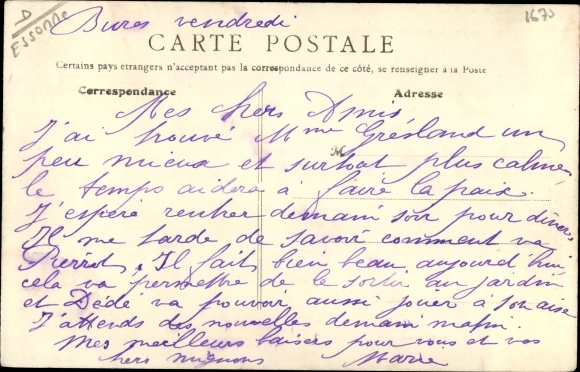 D
ESSONNE
1670
Bures vendredi
CARTE POSTALE
Certains pays étrangers n'acceptant pas la correspondance de ce côté, se renseigner à la Poste
Correspondance
Adresse
Mes chers Amis
J'ai trouvé Mme Gresland un
M
peu mieux et surtout plus calme,
le temps aidera à faire la paix.
J'espère rentrer demain soir pour dîner.
Il me tarde de savoir comment va
Pierrot. Il fait bien beau aujourd'hui
cela va permettre de le sortir au jardin
et Dédé va pouvoir aussi jouer à son aise
J'attends des nouvelles demain matin.
Mes meilleurs baisers pour vous et vos
chers mignons Marie